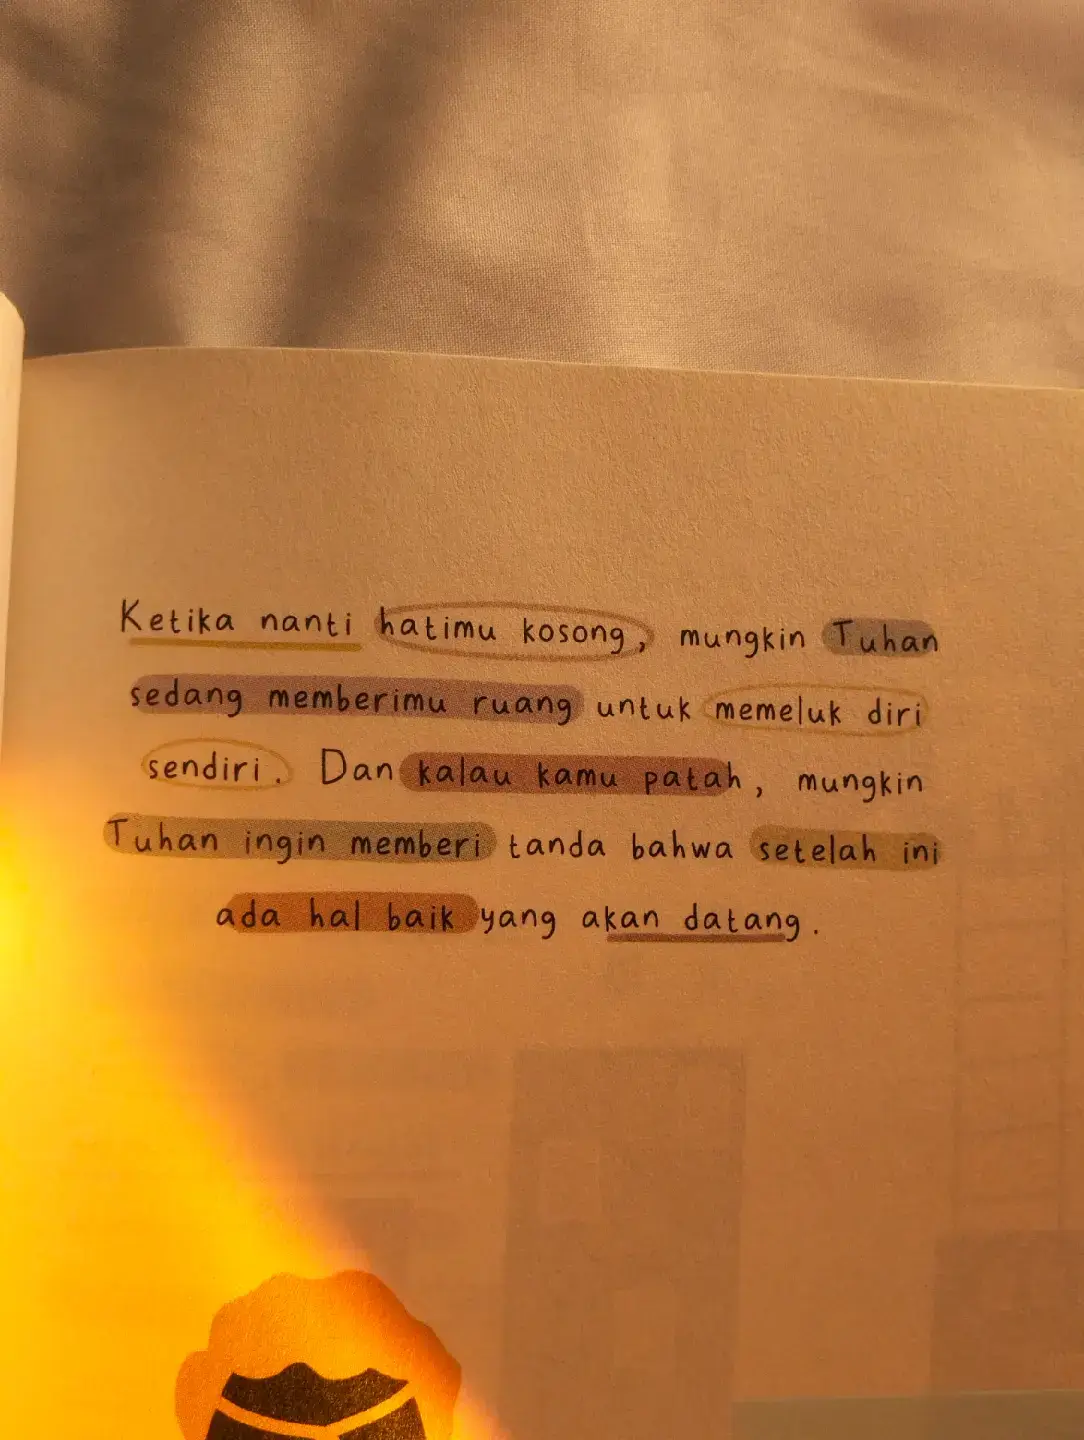 Ketika nanti hatimu kosong, mungkin Tuhan
sedang memberimu ruang untuk memeluk diri
sendiri. Dan kalau kamu patah, mungkin
Tuhan ingin memberi tanda bahwa setelah ini
ada hal baik yang akan datang.